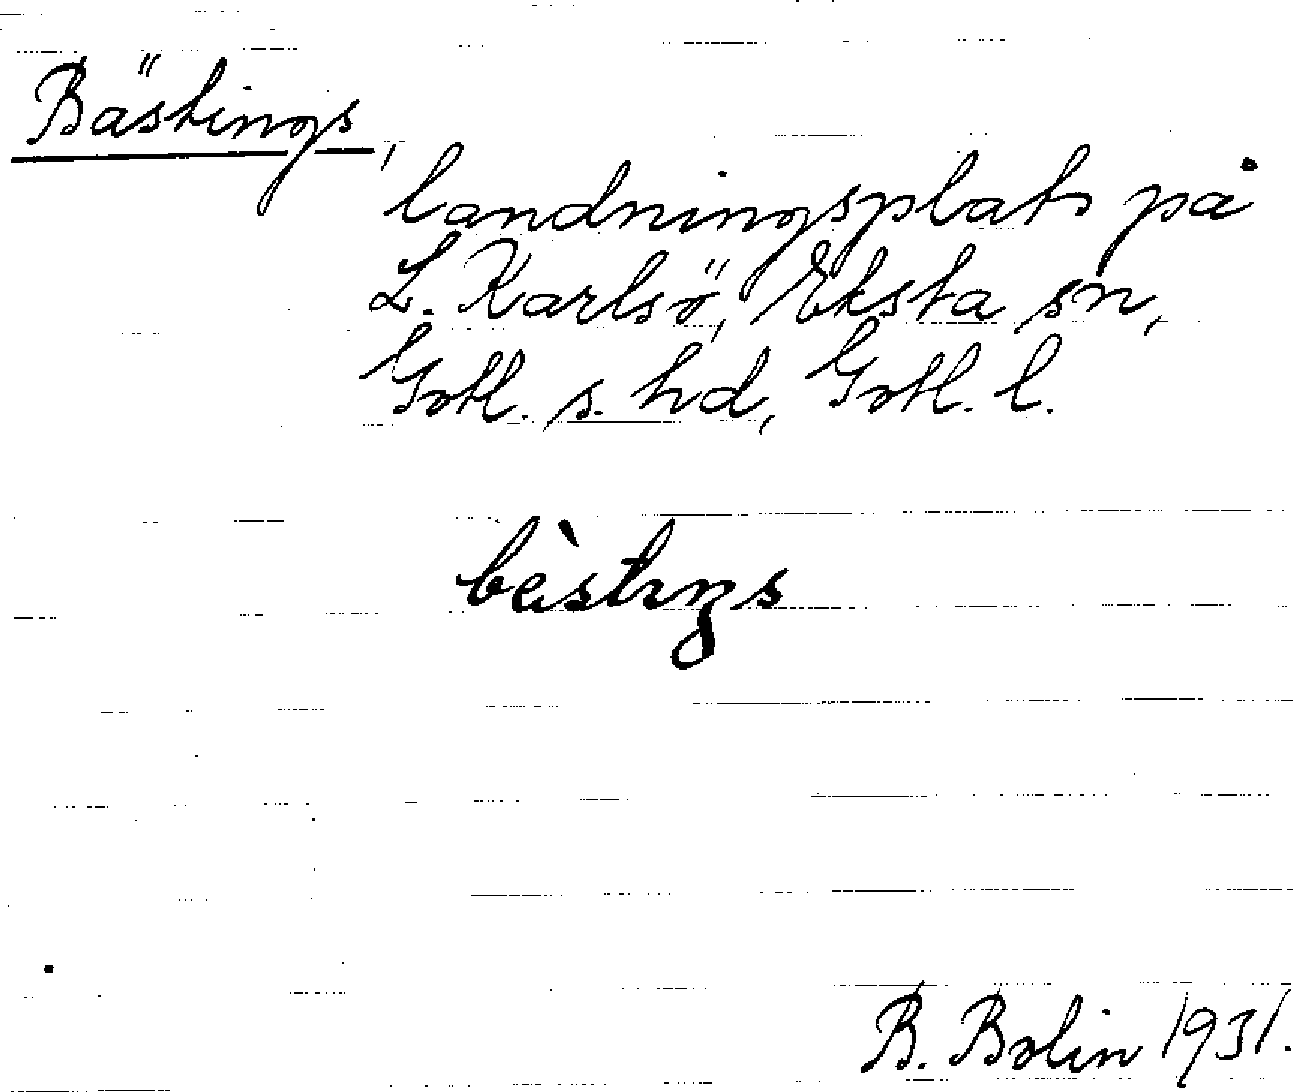 Bästings,
landningsplats på
L. Karlsö, Eksta sn,
Gotl. s. hd, Gotl. l.
bèstıŋs
B. Bolin 1931.